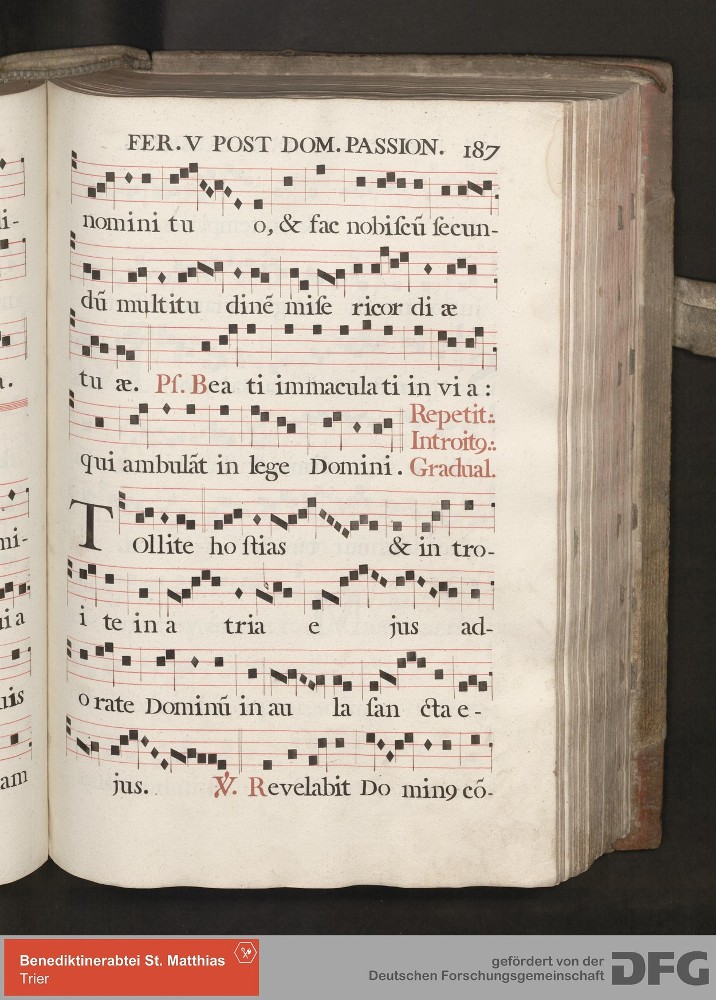 FER. V POST DOM. PASSION. 187
nomini tu o, & fac nobiſcū ſecun-
dū multitu dinē miſe ricor di æ
tu æ. Pſ. Bea ti immacula ti in vi a :
qui ambulāt in lege Domini. Repetit.:
Introit9.:
Gradual.
TOllite ho ſtias & in tro-
i te in a tria e jus ad-
o rate Dominū in au la ſan cta e -
jus. ℣. Revelabit Do min9 cō-
i-
a.
mi-
ui a
uis
am
Benediktinerabtei St. Matthias
Trier
gefördert von der
Deutschen Forschungsgemeinschaft
DFG